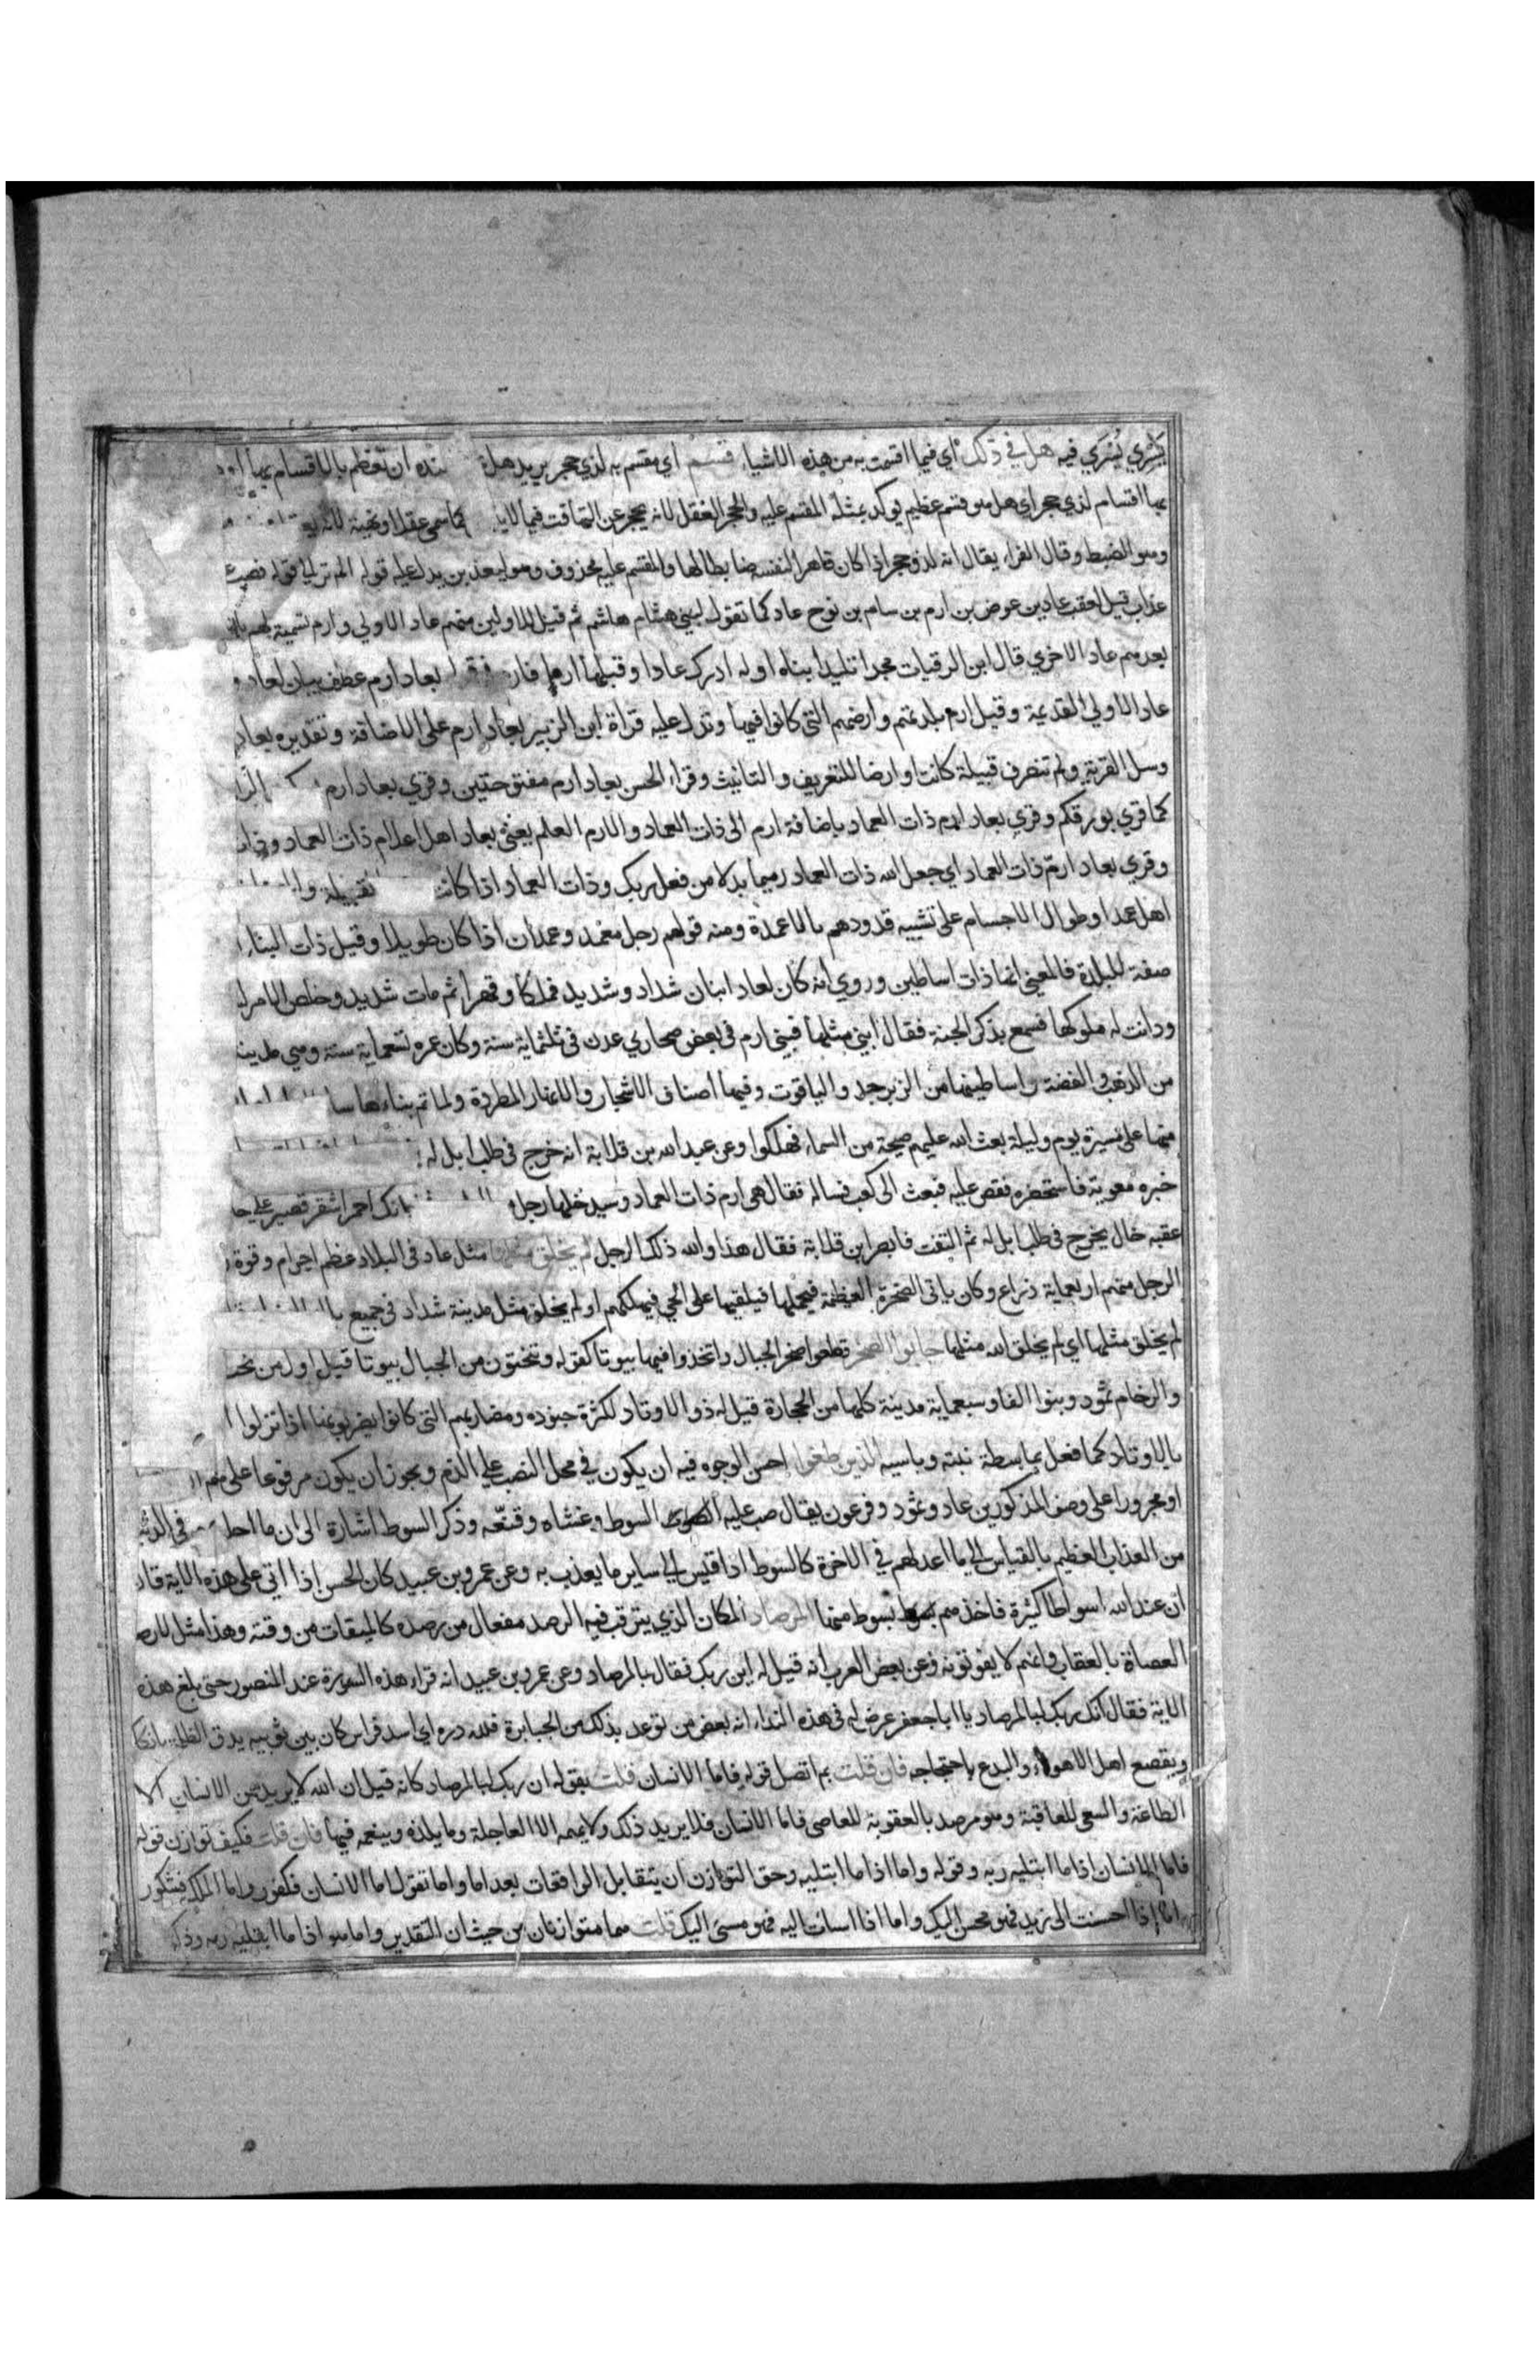 يَسْرِي يُسْرَي فيه هل في ذلك اي فيما اقسمت به من هذه الاشياء قسم اي مقسم به لذي حجر يريد هل ان تعظم بالاقسام بها
بها اقسام لذي حجر اي هل هو قسم عظيم يوكد بمثله المقسم عليه والحجر العقل لانه يحجر عن التهافت فيما لا كما سمي عقلا ونهية لانه
وهو الضبط وقال الفراء يقال انه لذو حجر اذا كان قاهرا لنفسه ضابطا لها والمقسم عليه محذوف وهو ليعذبن يدل عليه قوله الم تر الي قوله فصب
عذاب قيل لعقب عاد بن عوض بن ارم بن سام بن نوح عاد كما تقول لبني هشام هاشم ثم قيل للاولين منهم عاد الاولي وارم تسمية لهم
بعدهم عاد الاخري قال ابن الرقيات مجدا تليدا بناه اوله ادرك عادا وقبلها ارما فارم بعاد ارم عطف بيان لعاد و
عاد الاولي القديمة وقيل ارم بلدتهم وارضهم التي كانوا فيها وتدل عليه قراة ابن الزبير بعاد ارم على الاضافة وتقديره بعاد
وسل القرية ولم تنصرف قبيلة كانت او ارضا للتعريف والتانيث وقراء الحسن بعاد ارم مفتوحتين وقري بعاد ارم
كما قري بورقكم وقري بعاد ارم ذات العماد باضافة ارم الى ذات العماد والارم العلم يعني بعاد اهل اعلام ذات العماد
وقري بعاد ارمّ ذات العماد اي جعل الله ذات العماد رميما بدلا من فعل ربك وذات العماد اذا كانت
اهل عمد او طوال الاجسام على تشبيه قدودهم بالاعمدة ومنه قولهم رجل معمد وعمدان اذا كان طويلا وقيل ذات البناء
صفة للبلدة فالمعني انها ذات اساطين وروي انه كان لعاد ابنان شداد وشديد فملكا وقهرا ثم مات شديد وخلص الامر
ودانت له ملوكها فسمع بذكر الجنة فقال ابني مثلها فبني ارم في بعض صحاري عدن في ثلثماية سنة وكان عمره تسعماية سنة وهي مدينة
من الذهب والفضة واساطينها من الزبرجد والياقوت وفيها اصناف الاشجار والانهار المطردة ولما تم بناءها سا
منها على مسيرة يوم وليلة بعث الله عليهم صيحة من السماء فهلكوا وعن عبد الله بن قلابة انه خرج في طلب ابل له
خبره معوية فاستحضره فقص عليه فبعث الى كعب فساله فقال هي ارم ذات العماد وسيدخلها رجل احمر اشقر قصير على حا
عقبه خال يخرج في طلب ابل له ثم التفت فابصر ابن قلابة فقال هذا والله ذلك الرجل لم يخلق مثلها مثل عاد في البلاد عظم اجرام وقوة
الرجل منهم اربعماية ذراع وكان ياتي الصخرة العظيمة فيحملها فيلقيها على الحي فيهلكهم او لم يخلق مثل مدينة شداد في جميع
لم يخلق مثلها اي لم يخلق الله مثلها جابوا الصخر قطعوا صخر الجبال واتخذوا فيها بيوتا كقوله وتنحتون من الجبال بيوتا قيل اول من نحت
والرخام ثمود وبنوا الفا وسبعماية مدينة كلها من الحجارة قيل له ذو الاوتاد لكثرة جنوده ومضاربهم التي كانوا يضربونها اذا نزلوا
بالاوتاد كما فعل بماسطة بنته وباسية الذين طغوا احسن الوجوه فيه ان يكون في محل النصب علي الذم ويجوز ان يكون مرفوعا على هم
او مجرورا على وصف المذكورين عاد وثمود وفرعون يقال صب عليه السوط وغشاه وقنعّه وذكر السوط اشارة الى ان ما احل في الد
من العذاب العظيم بالقياس الي ما اعد لهم في الاخرة كالسوط اذا قيس الي ساير ما يعذب به وعن عمرو بن عبيد كان الحسن اذا اتي على هذه الاية قا
ان عند الله اسواطا كثيرة فاخذهم بسوط منها المرصاد المكان الذي يترقب فيه الرصد مفعال من رصده كالميقات من وقته وهذا مثل
العصاة بالعقاب وانهم لا يفوتونه وعن بعض العرب انه قيل له اين ربك فقال بالمرصاد وعن عمرو بن عبيد انه قراء هذه السورة عند المنصور حتى بلغ هذه
الاية فقال ان ربك لبالمرصاد يا ابا جعفر عرض له في هذه النداء انه بعض من توعد بذلك من الجبابرة فلله دره اي اسد فراس كان بين ثوبيه يدق الظلمة
ويقصع اهل الاهواء والبدع باحتجاجه فان قلت بم اتصل قوله فاما الانسان قلت بقوله ان ربك لبالمرصاد كانه قيل ان الله لا يريد من الانسان الا
الطاعة والسعي للعاقبة وهو مرصد بالعقوبة للعاصي فاما الانسان فلا يريد ذلك ولا يهمه الا العاجلة وما يلذه وينعمه فيها فان قلت فكيف توازن قوله
فاما الانسان اذا ما ابتليه ربه وقوله واما اذا ما ابتليه وحق التوازن ان يتقابل الواقعات بعد اما واما تقول اما الانسان فكفور واما الملك فشكور
اما اذا احسنت الى زيد فهو محسن اليك واما اذا اسات اليه فهو مسيء اليك قلت هما متوازنان من حيث ان التقدير واما هو اذا ما ابتليه ربه وذلك